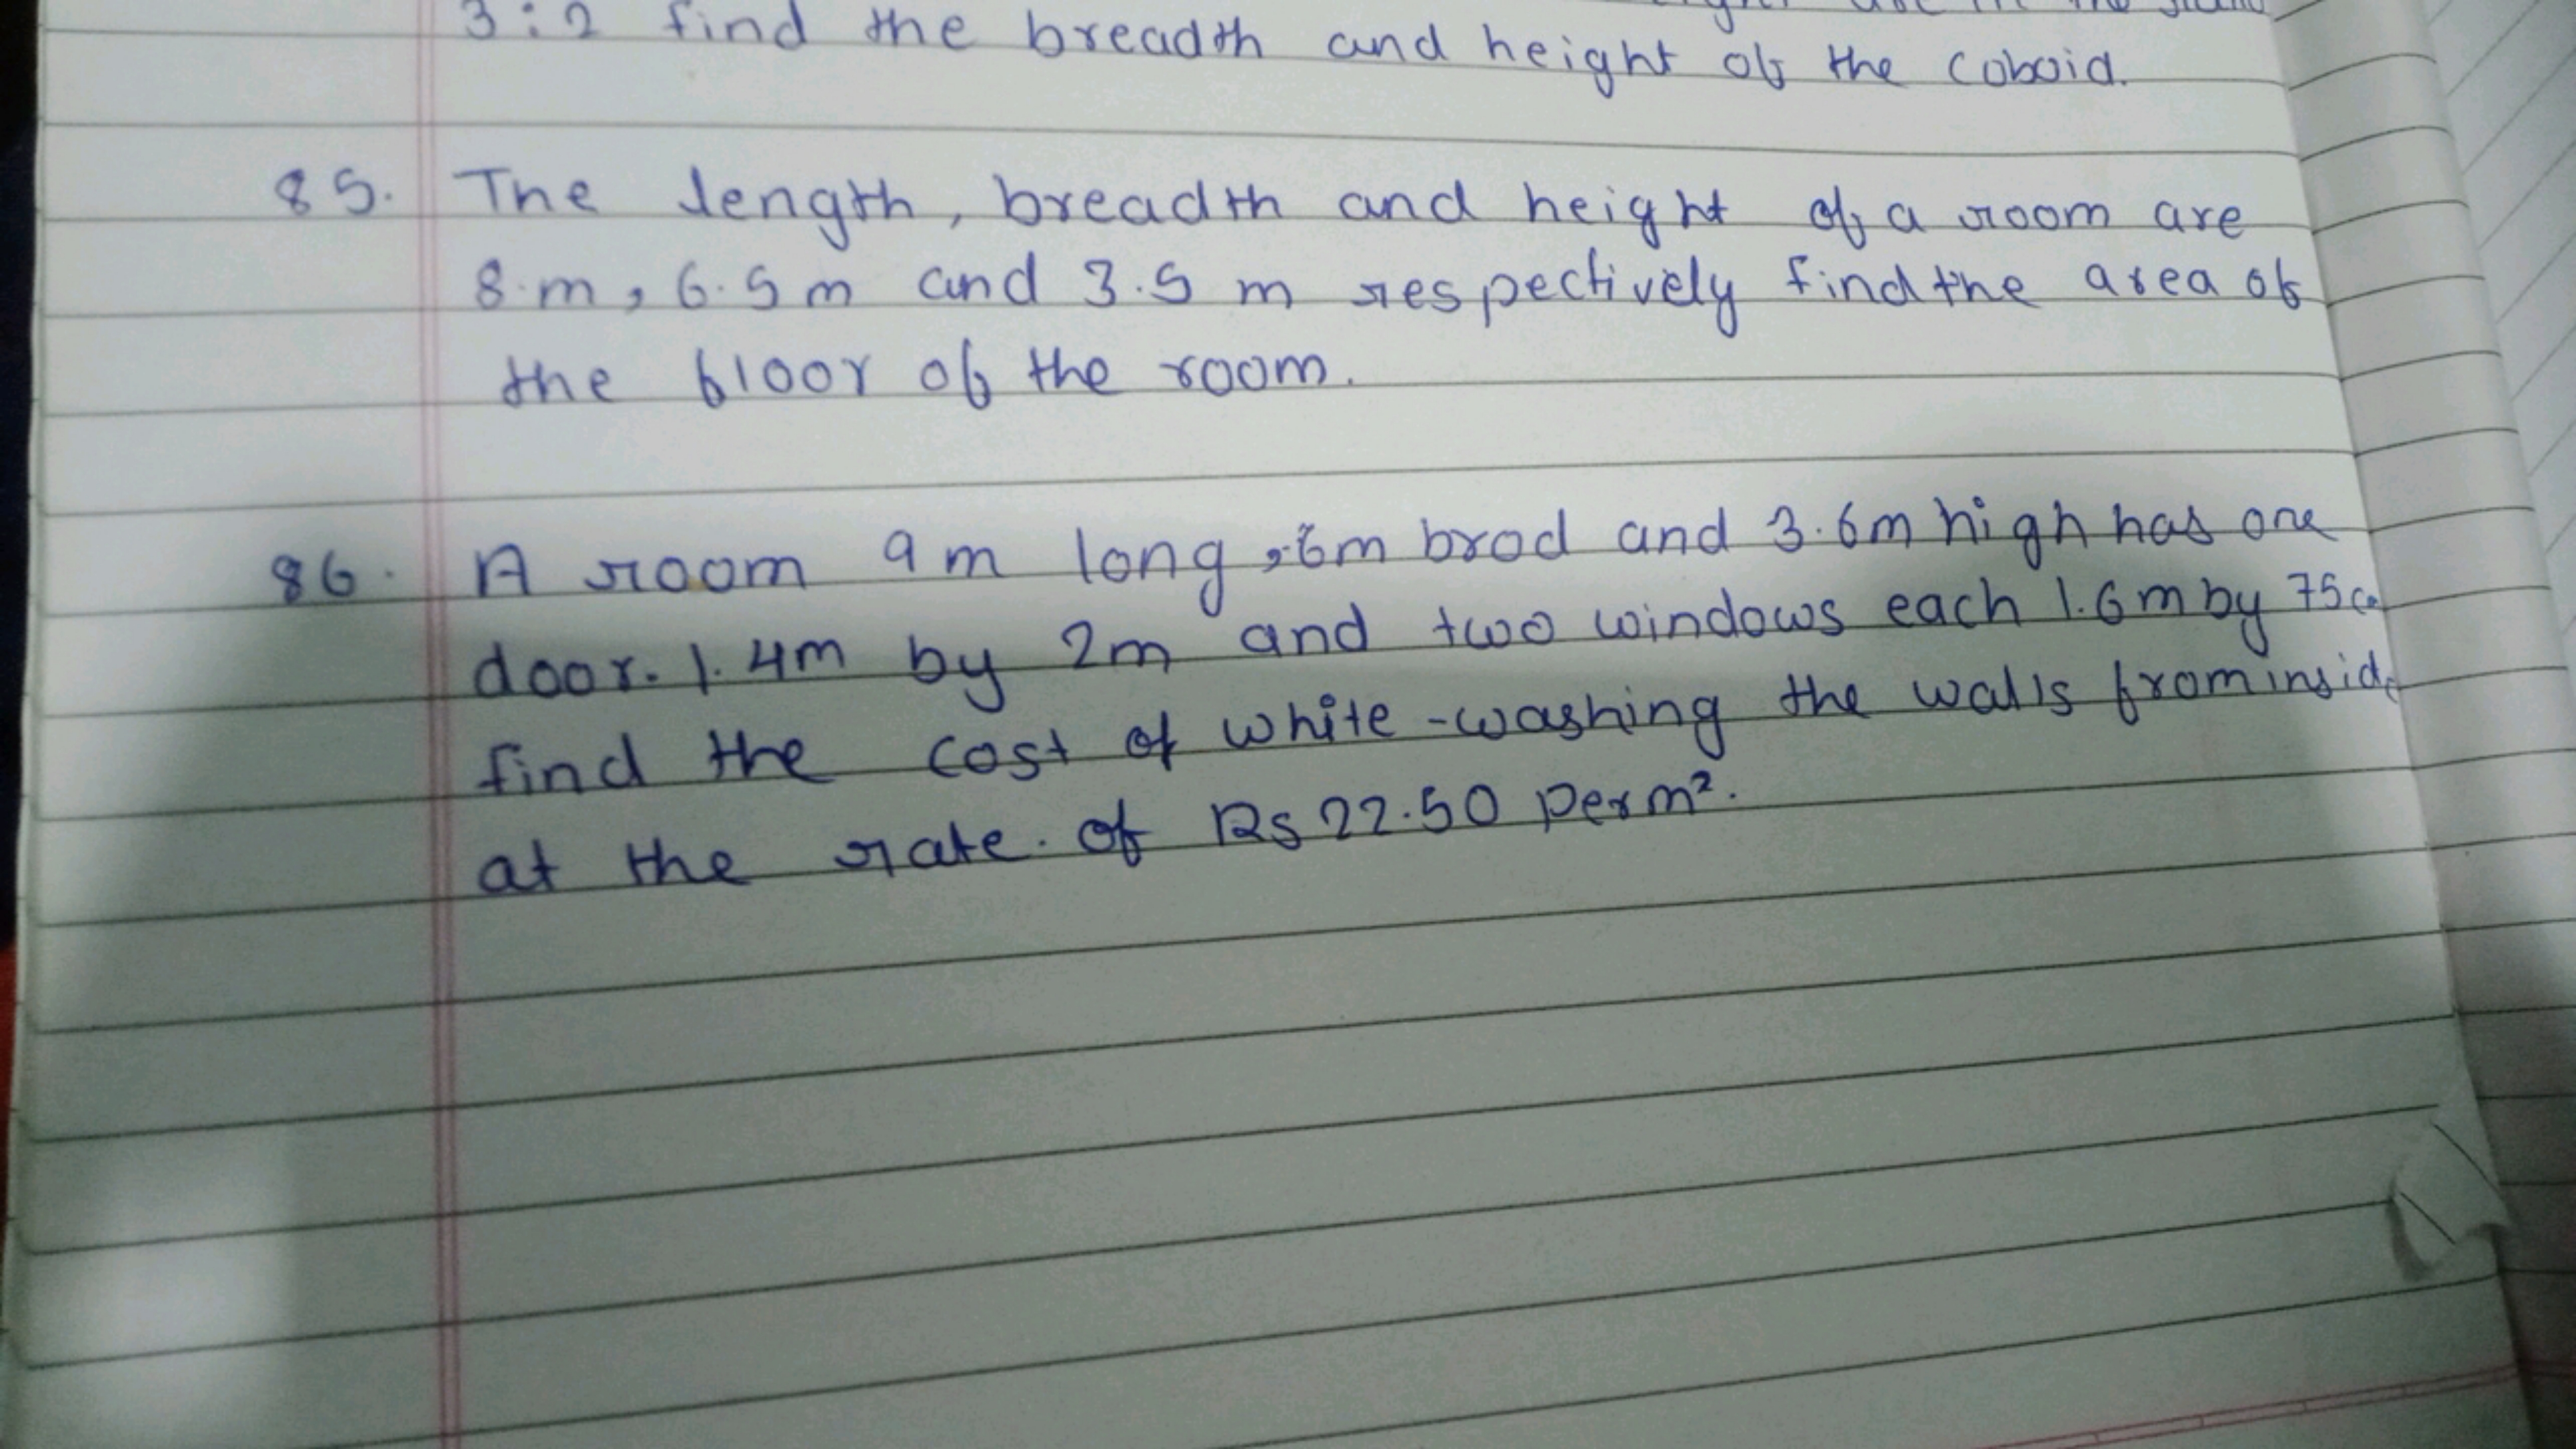 3:2 find the breadth and height of the coboid.
85. The length, breadth and height of a room are
8.m, 6.5m and 3.5 m respectively find the area of
the floor of the room.
86. A room 9m long, 6m brod and 3.6m high has one
door. 1.4m by 2m and two windows each 1.6m by 75c
find the cost of white-washing the walls from insid
at the rate. of Rs 22.50 per m².